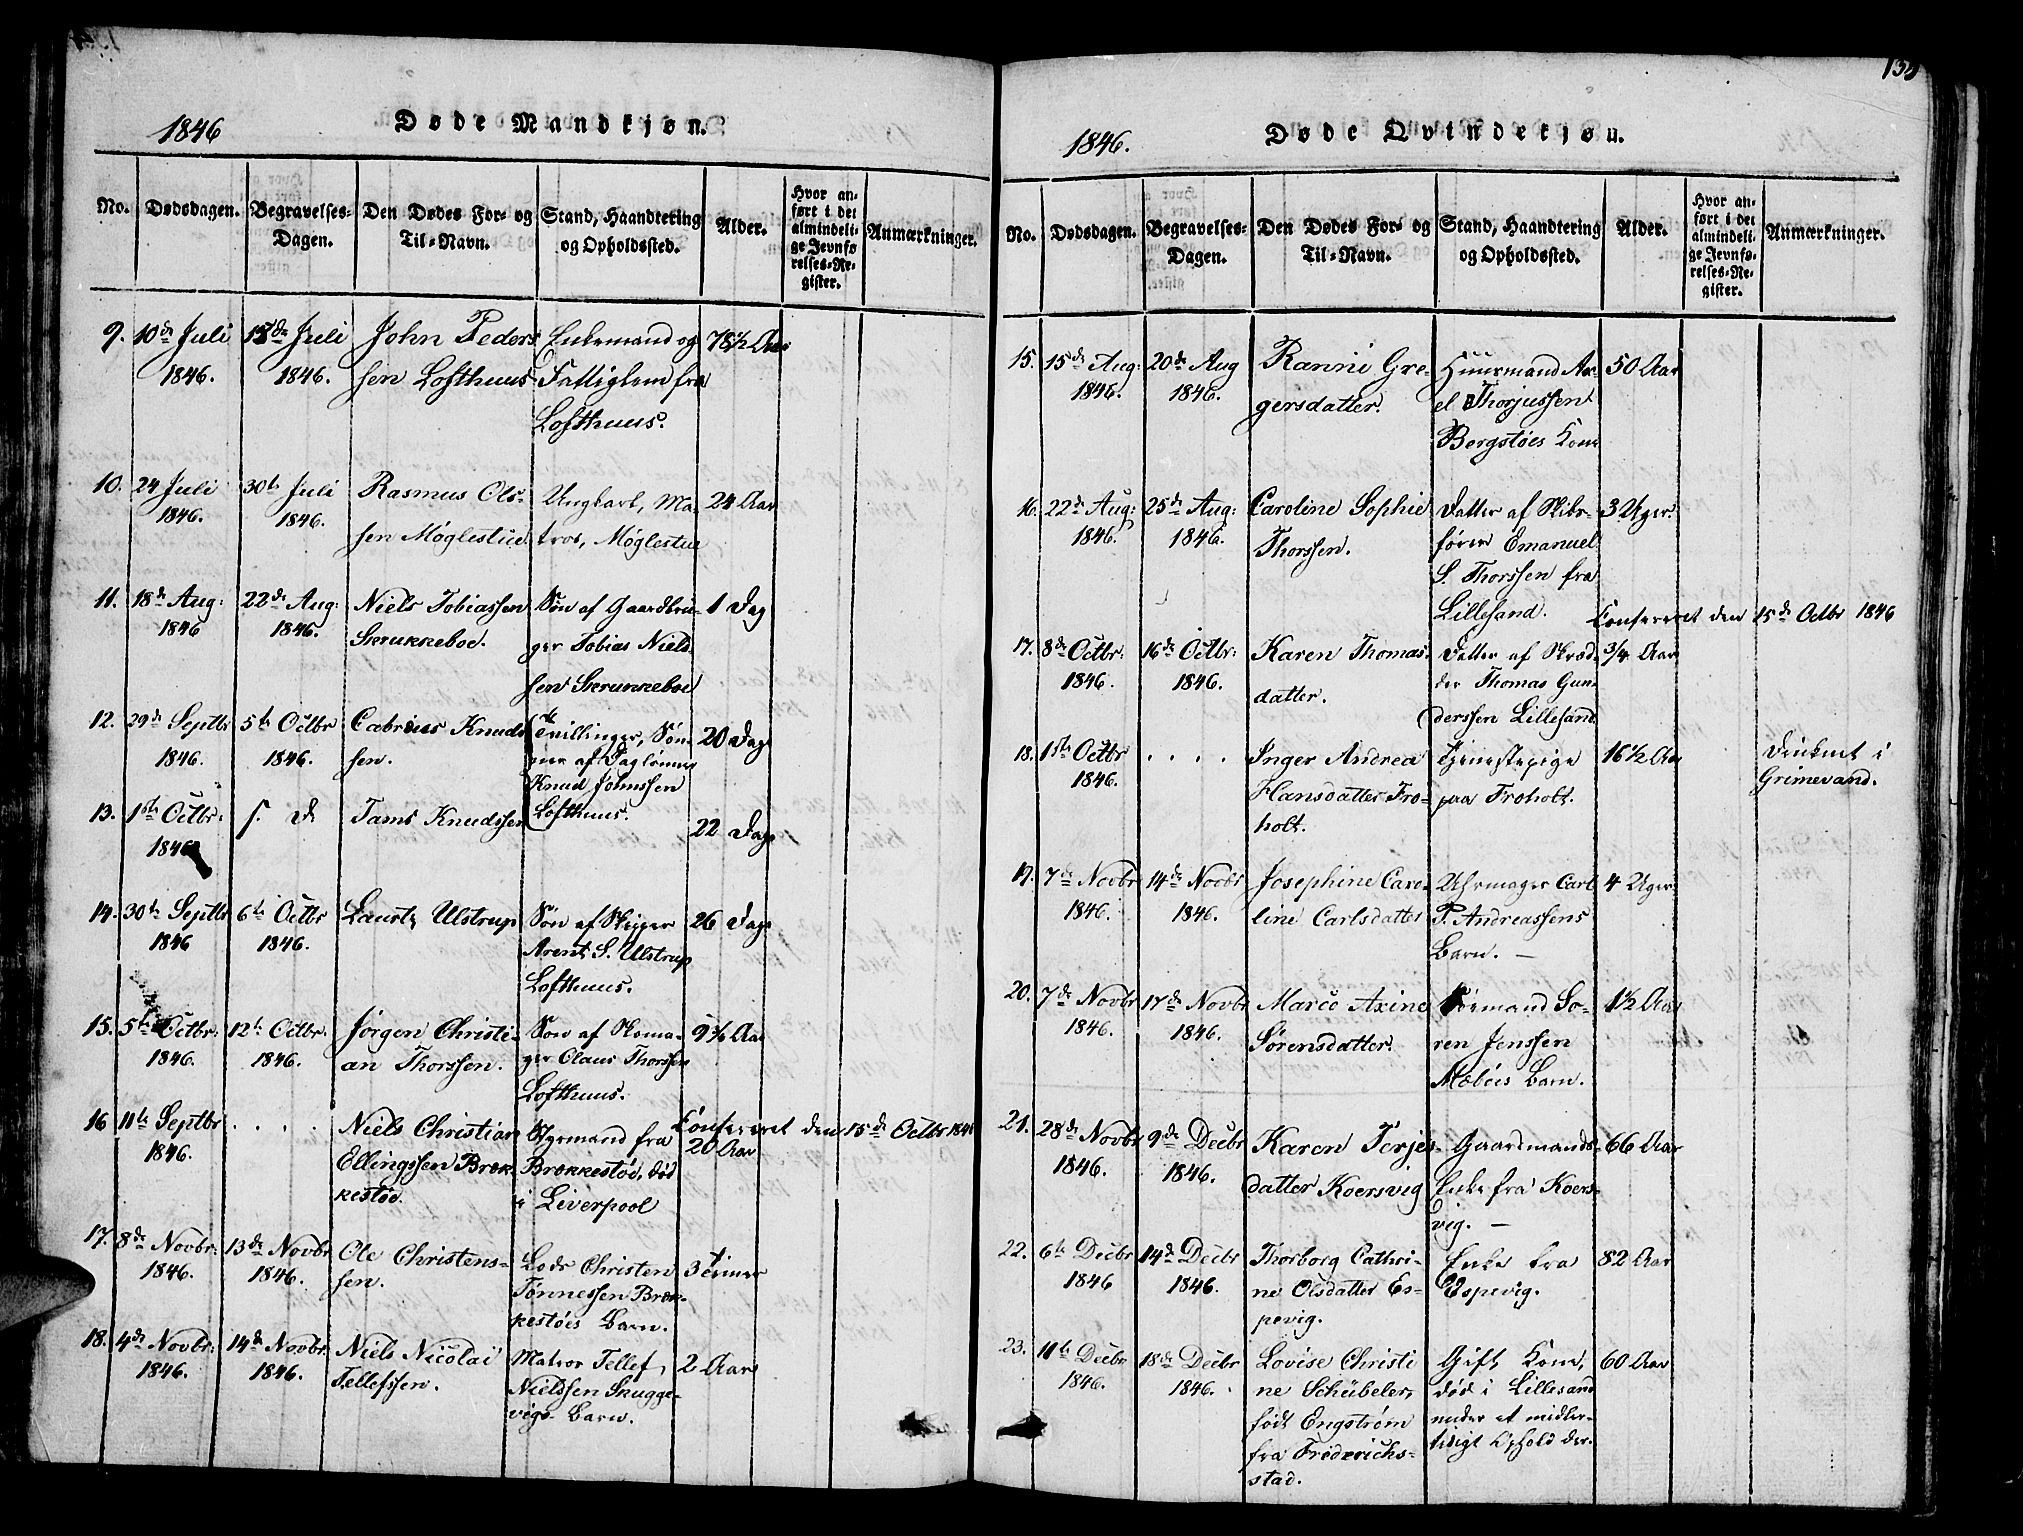 1846
Døde Mandkjøn.
No.
Dødsdagen.
Begravelses-
Dagen.
Den Dødes For- og
Til-Navn.
Stand, Haandtering
og Opholdssted.
Alder.
Hvor an-
ført i det
almindeli-
ge Jevnfø
relses-Re-
gister.
Anmærkninger.
9. 10de Juli
1846.
de Juli
1846.
John Peders
sen Lofthuus
Enkemand og
Fattiglem fra
Lofthuus.
78½ Aar
10. 24 Juli
1846.
30te Juli
1846.
Rasmus Ols-
sen Møglestue
Ungkarl, Ma-
tros, Møglestue
24 Aar
11. 18de Aug:
1846
22de Aug:
1846.
Niels Tobiassen
Skrukkeboe.
Søn af Gaardbru-
ger Tobias Niels
sen Skrukkeboe
1 Dag
12. 29de Septbr
1846.
5te Octbr
1846.
Knuds
sen.
Tvillinger, Søn-
ner af Daglønner
Knud Johnssen
Lofthuus.
20 Dage
13. 1ste Octbr:
1846
s. d
Tams Knudssen
22 Dage
14. 30te Septbr
1846
6te Octbr
1846.
Lauritz Ulstrup
Søn af Skipper
Arent S. Ulstrup
Lofthuus.
26 Dage
15. 5te Octbr:
1846.
12te Octbr:
1846.
Jørgen Christi-
an Thorssen.
Søn af Skoma-
ger Claus Thorssen
Lofthuus.
9 Aar
16 11te Septbr
1846.
. . . .
Niels Christian
Ellingssen Bræk
kestøe.
Styrmand fra
Brækkestøe, død
i Liverpool
Confereret den 15de Octbr 1846
20 Aar
17. 8de Novbr:
1846.
13de Novbr
1846.
Ole Christens-
sen.
Lods Christen
Tønnessen Bræk-
kestøes Barn.
3 Timer
18. 4de Novbr:
1846.
14de Novbr:
1846.
Niels Nicolai
Tellefssen.
Matros Tellef
Nielssen Skugge-
vigs Barn.
2 Aar
1846.
Døde Qvindekjøn.
No.
Dødsdagen.
Begravelses-
Dagen.
Den Dødes For- og
Til-Navn.
Stand, Haandtering
og Opholdssted.
Alder.
Hvor an-
ført i det
almindeli-
ge Jevnfø-
relses-Re-
gister.
Anmærkninger.
15. 15de Aug:
1846.
20de Aug
1846.
Ranni Gre-
gersdatter.
Huusmand Ax-
el Thorjussen
Bergstøes Kone
50 Aar
16. 22de Aug:
1846.
25de Aug:
1846.
Caroline Sophie
Thorssen.
Datter af Skibs-
fører Emanuel
S. Thorssen fra
Lillesand.
3 Uger.
Confereret den 15de Octbr 1846
17. 8de Octbr:
1846.
16de Octbr:
1846.
Karen Thomas-
datter.
Datter af Skræd-
der Thomas Gun-
derssen Lillesand
3/4 Aar
18. 1ste Octbr
1846.
. . . .
Inger Andrea
Hansdatter Fro-
holt.
Tjenestepige
paa Froholt.
16½ Aar
Druknet i
Grimevand.
19. 7de Novbr
1846.
14de Novbr
1846.
Josephine Caro-
line Carlsdatter
Uhrmager Carl
P. Andreassens
Barn. —
4 Uger
20. 7de Novbr
1846.
17de Novbr
1846.
Maren Axine
Sørensdatter.
Sømand Sø-
ren Jenssen
Mæbøes Barn.
1½ Aar
21. 28de Novbr
1846.
9de Decbr
1846.
Karen Terjes-
datter Koersvig
Gaardmands-
Enke fra Koers-
vig. —
66 Aar
22. 6te Decbr
1846
14de Decbr
1846.
Thorborg Cathri-
ne Olsdatter Es-
pevig.
Enke fra
Espevig.
82 Aar
23. 11te Decbr
1846.
18de Decbr
1846.
Lovise Christi
ne Schübeler,
født Engstrøm
fra Friderichs-
stad.
Gift Kone,
død i Lillesand
under et midler-
tidigt Ophold der.
60 Aar